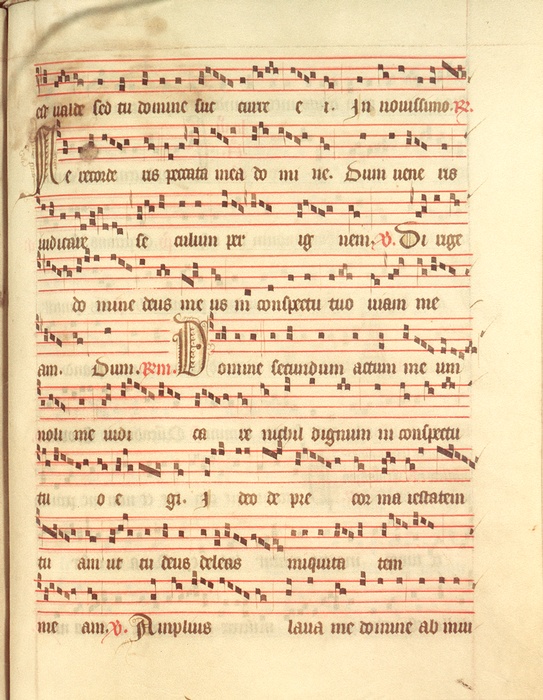 est valde sed tu domine suc curre e i. In novissimo. R.
Ne recorde ris peccata mea do mi ne. Dum vene ris
iudicare se culum per ig nem. V. Di rige
do mine deus me us in conspectu tuo viam me
am. Dum. Domine secundum actum me um
noli me iudi ca re nichil dignum in conspectu
tu o e gi. I deo de pre cor ma iestatem
tu am ut tu deus deleas iniquita tem
me am. V. Amplius lava me domine ab iniu